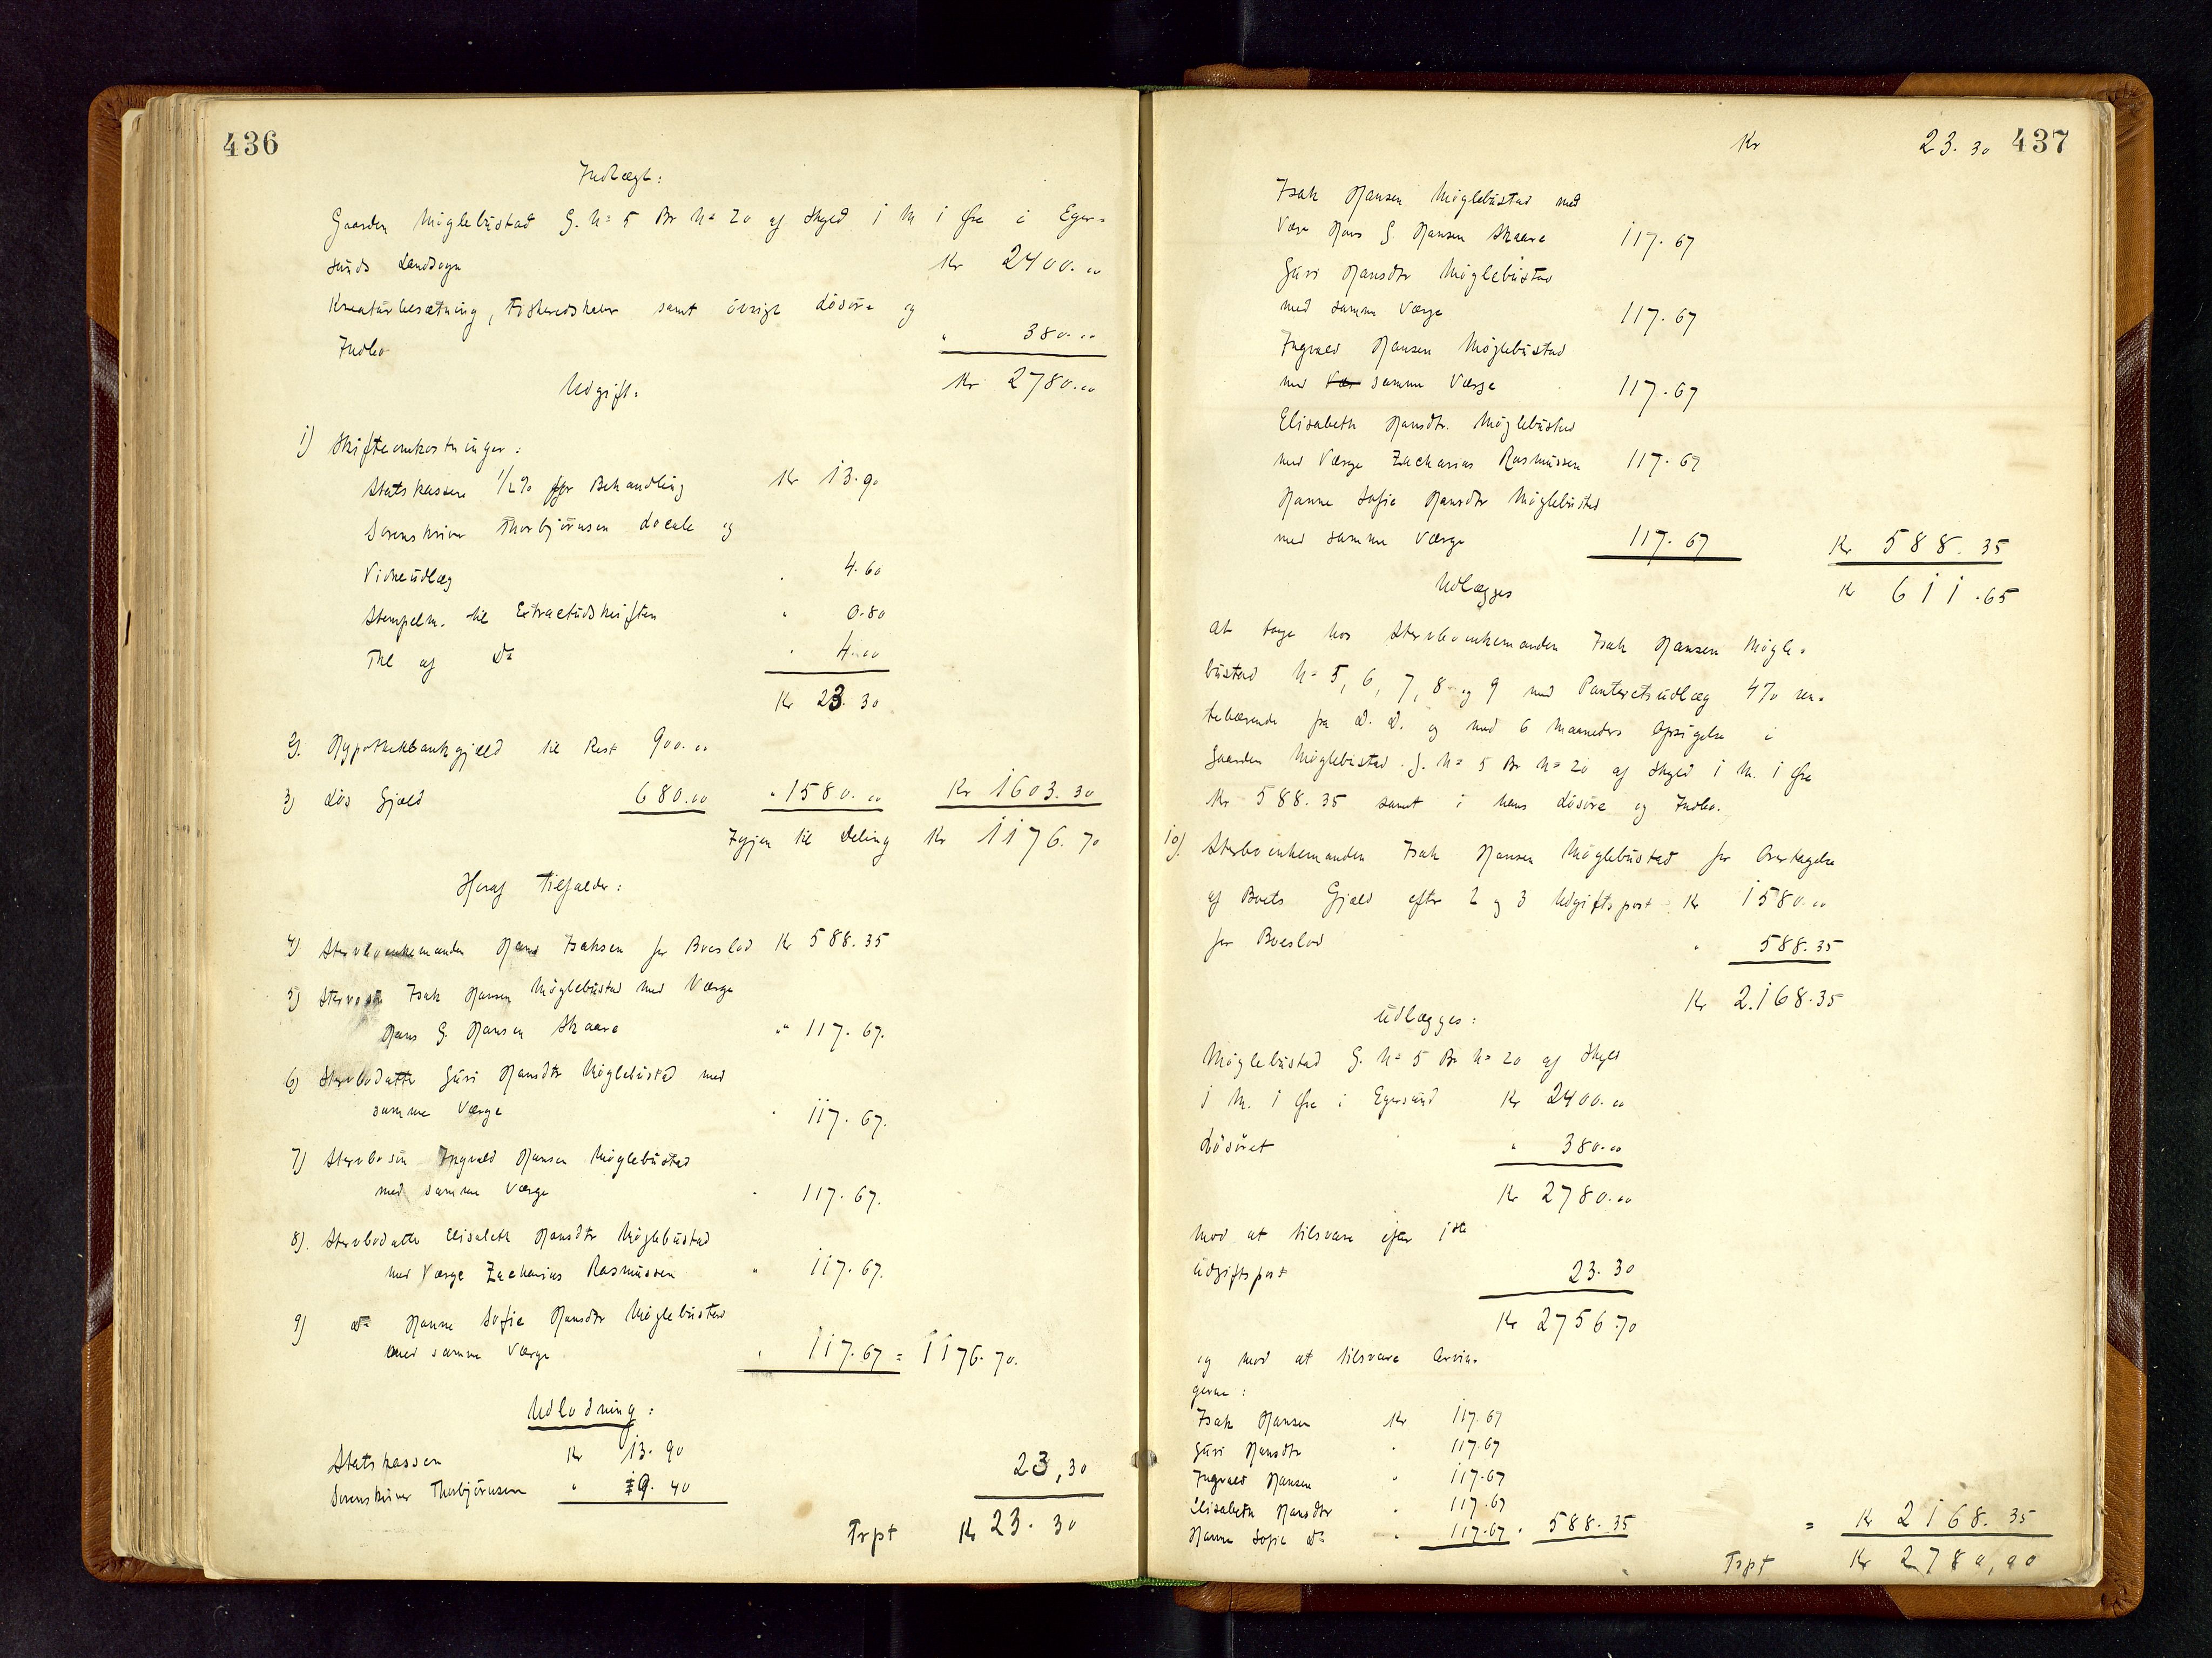 436
Indtægt:
Gaarden Møglebustad G. No 5 Br No 20 af Skyld 1 M 1 Øre i Eger=
sunds Landsogn Kr 2400.00
Kreaturbesætning, Fiskeredskaber samt øvrige Løsøre og
Indbo " 380.00
Kr 2780.00
Udgift.
1) Skifteomkostninger:
Statskassen 1/2% for Behandling Kr 13.90
Sorenskriver Thorbjørnsen Locale og
Vidneudlæg " 4.60
Stempelm. til Extractudskriften " 0.80
Thl af Do " 4.00
Kr 23.30
2) Hypothekbankgjæld til Rest 900.00
3) Løs Gjæld 680.00 " 1580.00 Kr 1603.30
Igjen til Deling Kr 1176.70
Heraf tilfalder:
4) Stervboenkemanden Hans Isaksen for Boeslod Kr 588.35
5) Stervbosøn Isak Hansen Møglebustad med Værge
Hans G. Hansen Skaare " 117.67.
6) Stervbodatter Guri Hansdtr Møglebustad med
samme Værge " 117.67.
7) Stervbosøn Ingvald Hansen Møglebustad
med samme Værge " 117.67.
8). Stervbodatter Elisabeth Hansdtr Møglebustad
med Værge Zacharias Rasmussen " 117.67.
9) Do Hanne Sofie Hansdtr Møglebustad
med samme Værge " 117.67 = 1176.70.
Udlodning:
Statskassen Kr 13.90
Sorenskriver Thorbjørnsen " 9.40 23,30
Trpt Kr 23.30
437
Kr 23.30
Isak Hansen Møglebustad med
Værge Hans G. Hansen Skaare 117.67
Guri Hansdtr Møglebustad
med samme Værge 117.67
Ingvald Hansen Møglebustad
med Vær samme Værge 117.67
Elisabeth Hansdtr. Møglebustad
med Værge Zacharias Rasmussen 117.67
Hanne Sofie Hansdtr Møglebustad
med samme Værge 117.67 Kr 588.35
Udlægges Kr 611.65
at tage hos Stervboenkemanden Isak Hansen Møgle=
bustad No 5, 6, 7, 8 og 9 med Panteretsudlæg 4% ren=
tebærende fra D. D. og med 6 Maaneders Opsigelse i
Gaarden Møglebustad G. No 5 Br No 20 af Skyld 1 M. 1 Øre
Kr 588.35 samt i hans Løsøre og Indbo.
10) Stervboenkemanden Isak Hansen Møglebustad for Overtagelse
af Boets Gjæld efter 2 og 3 Udgiftspost Kr 1580.00
for Boeslod " 588.35
Kr 2.168.35
udlægges:
Møglebustad G. No 5 Br No 20 af Skyld
1 M. 1 Øre i Egersund Kr 2400.00
Løsøret " 380.00
Kr 2780.00
mod at tilsvare efter 1ste
Udgiftspost 23.30
Kr 2756.70
og mod at tilsvare Arvin=
gerne:
Isak Hansen Kr 117.67
Guri Hansdtr " 117.67
Ingvald Hansen " 117.67
Elisabeth Hansdtr " 117.67
Hanne Sofie Do " 117.67 " 588.35 = Kr 2168.35
Trpt Kr 2780,00